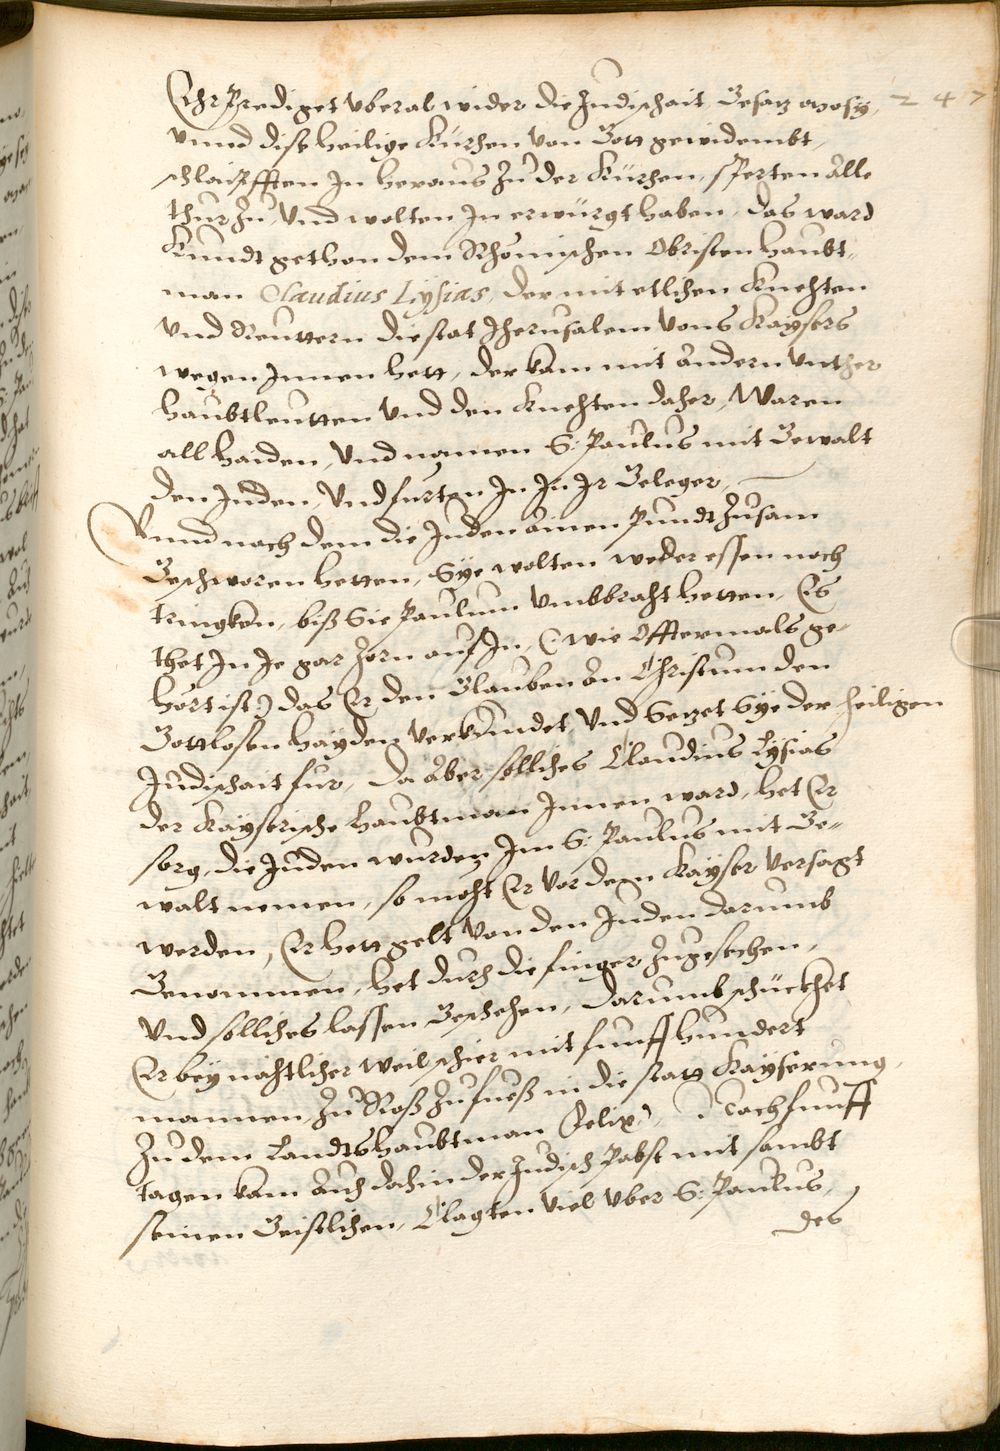 Ehr Prediget vberal wider die Judischait Gesatz Mosy, 247
vnnd dise heilige Kürchen von Gott gewidembt,
schlaipfften In heraus Zu der Kürchen, sperten Alle
thur Zu, Vnd wolten In erwürgt haben, das ward
Kundt gethon dem Rhömischen Obristen haubt-
man Claudius Lysias, der mit etlichen Knehten
Vnd Reuttern die stat Jherusalem Vons Kaysers
wegen Innen hett, der kam mit Andern Vnther
haubtleutten Vnd den Knehten daher, Waren
all haiden, Vnd namen S: Paulus mit Gewalt
den Juden, Vnd furten In In Ir Geleger,
Vnnd nach dem die Juden ainen Pundt Zusam
Geschworen hetten, Sye wolten weder essen noch
tringken, biß Sie Paulum Vmbbraht hetten, Es
thet In Je gar Zorn auf In, (wie Offtermals ge-
hört ist) das Er den Glauben An Christum den
Gottlosen hayden Verkündet, Vnd Setzet Sye der heiligen
Judischait fur, Da Aber solliches Claudius Lysias
der Kayserische haubtman Innen ward, het Er
sorg, die Juden wurden Im S: Paulus mit Ge-
walt nemen, so moht Er Vor dem Kayser Versagt
werden, Er hett gelt Von den Juden darumb
Genommen, het durch die finger Zugesehen,
Vnd solliches lassen Geschehen, Darumb schückhet
Er bey nähtlicher weil schier mit funffhundert
mannen, Zu Roß Zu fueß in die statt Kayserung,
Zu dem Landtshaubtman Felix, Nach funff
tagen kam Auch dahin der Judisch Pabst mit sambt
seinen Geistlichen, Clagten viel vber S: Paulus,
des